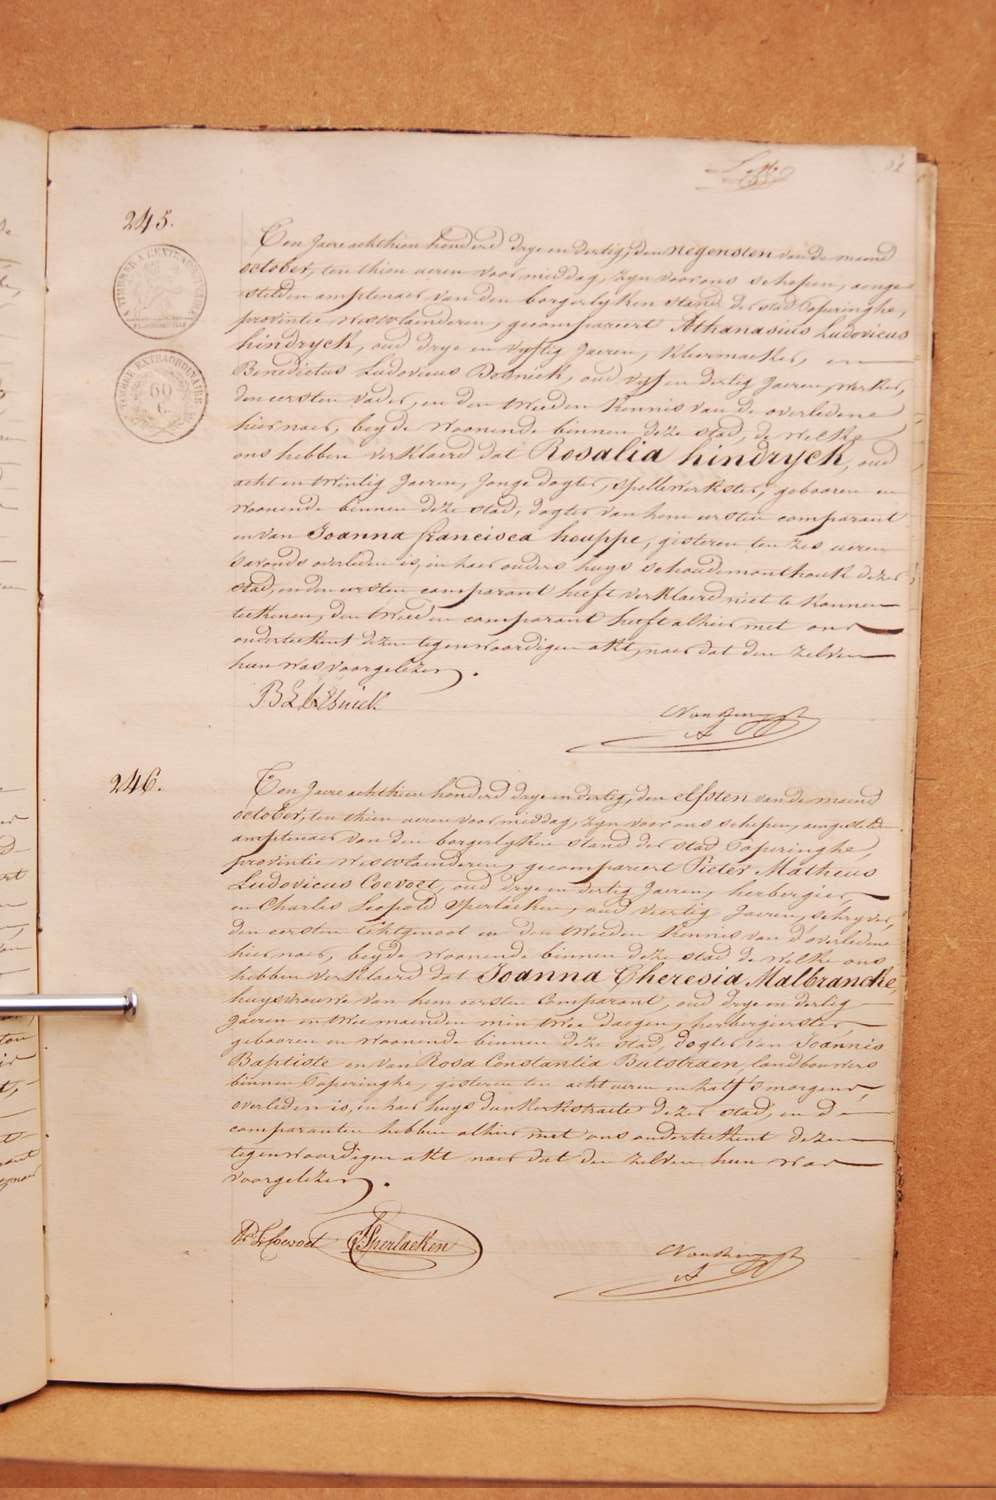 245.
TIMBRE EXTRAORDINAIRE
60
C.
Ten Jaere achthien honderd drye en dertig, den negensten van de maend
october, ten thien ueren voor middag, zyn voor ons schepen, aenge-
stelden amptenaer van den borgerlyken stand der stad Poperinghe,
provintie Westvlaenderen, gecompareert Athanasius Ludovicus
hindryck, oud drye en vyftig Jaeren, kleermaeker, en
Benedictus Ludovicus, oud vyf en dertig Jaeren, werker,
den eersten vader, en den tweeden kennis van de overledene
hier naer, beyde woonende binnen deze stad, de welke
ons hebben verklaerd dat Rosalia hindryck, oud
acht en twintig Jaeren, Jonge dogter, spellewerkster, gebooren en
woonende binnen deze stad, dogter van hem eersten comparant
en van Joanna francisca houppe, gisteren ten zes ueren
's avonds overleden is, in haer ouders huys schoudemonthoek dezer
stad, en den eersten comparant heeft verklaerd niet te konnen
teekenen, den tweeden comparant heeft alhier met ons
onderteekent dezen tegenwoordigen akt, naer dat den zelven
hun was voorgelezen.
246.
Ten Jaere achthien honderd drye en dertig, den elfsten van de maend
october, ten thien ueren voor middag, zyn voor ons schepen, aengestelden
amptenaer van den borgerlyken stand der stad Poperinghe,
provintie Westvlaenderen, gecompareert Pieter Matheus
Ludovicus Coevoet, oud drye en dertig Jaeren, herbergier,
en Charles Leopold Sperlaeken, oud veertig Jaeren, schryver,
den eersten Echtgenoot en den tweeden kennis van d'overledene
hier naer, beyde woonende binnen deze stad de welke ons
hebben verklaerd dat Joanna Theresia Malbrancke,
huysvrouwe van hem eersten comparant, oud drye en dertig
Jaeren en twee maenden min twee daegen, herbergierster,
gebooren en woonende binnen deze stad, dogter van Joannis
Baptiste en van Rosa Constantia Butstraen, landbouwers
binnen Poperinghe, gisteren ten acht ueren en half 's morgens,
overleden is, in haer huys dunkerkstraete dezer stad, en de
comparanten hebben alhier met ons onderteekent dezen
tegenwoordigen akt naer dat den zelven hun was
voorgelezen.
Pr L Coevoet Sperlaeken